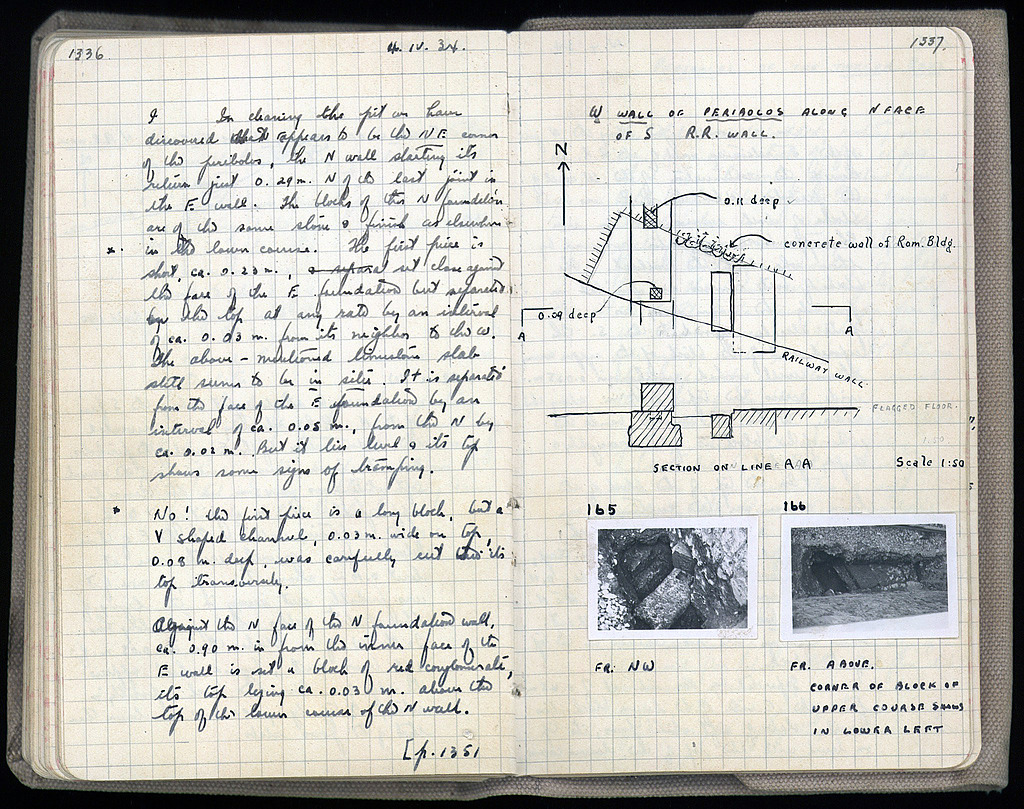 1336
4. IV. 34.
I In clearing the pit we have
discovered what appears to be the NE corner
of the peribolos, the N wall starting its
return just 0.29 m. N of the last joint in
the E wall. The blocks of this N foundation
are of the same stone & finish as elsewhere
* in the lower course. The first piece is
short, ca. 0.23 m., set close against
the face of the E foundation but separated
by the top at any rate by an interval
of ca. 0.03 m. from its neighbor to the W.
The above-mentioned limestone slab
still seems to be in situ. It is separated
from the face of the E foundation by an
interval of ca. 0.05 m., from the N by
ca. 0.02 m. But it lies level & its top
shows some signs of tramping.
* No! the first piece is a long block, but a
V shaped channel, 0.03 m. wide on top,
0.08 m. deep, was carefully cut thro' its
top transversely.
Against the N face of the N foundation wall,
ca. 0.90 m. in from the inner face of the
E wall is set a block of red conglomerate,
its top lying ca. 0.03 m. above the
top of the lower course of the N wall.
[p. 1351
1337
W WALL OF PERIBOLOS ALONG N FACE
OF S R.R. WALL.
N
0.11 deep
concrete wall of Rom. Bldg.
0.09 deep
A
A
RAILWAY WALL
FLAGGED FLOOR.
SECTION ON LINE AA
Scale 1:50
165
166
FR. NW
FR. ABOVE.
CORNER OF BLOCK OF
UPPER COURSE SHOWS
IN LOWER LEFT